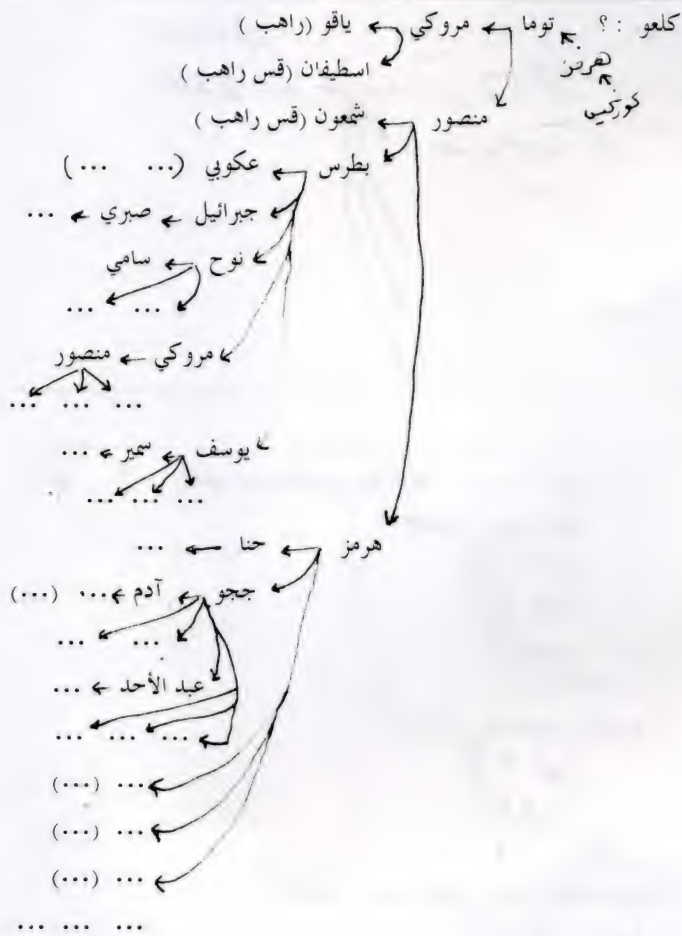 كلعو : ؟ توما مروكي ياقو (راهب)
هرمز
اسطيفان (قس راهب)
كوركيس
منصور شمعون (قس راهب)
بطرس عكوبي (... ...)
جبرائيل صبري ...
نوح سامي
... ...
مروكي منصور
... ... ...
يوسف سمير ...
... ... ...
هرمز حنا ...
ججو آدم ... (...)
... ...
عبد الأحد ...
... ... ...
... (...)
... (...)
... (...)
... ... ...